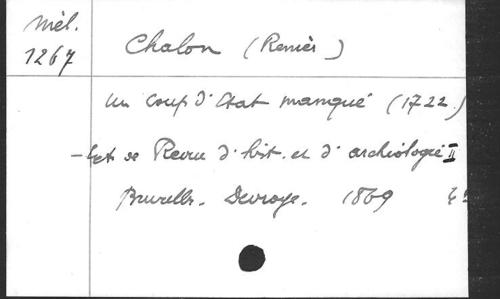 Mél.
1267
Chalon (Renier)
Un coup d'Etat manqué (1722.)
- Ext de Revue d'hist. et d'archéologie II
Bruxelles. Devroye. 1869